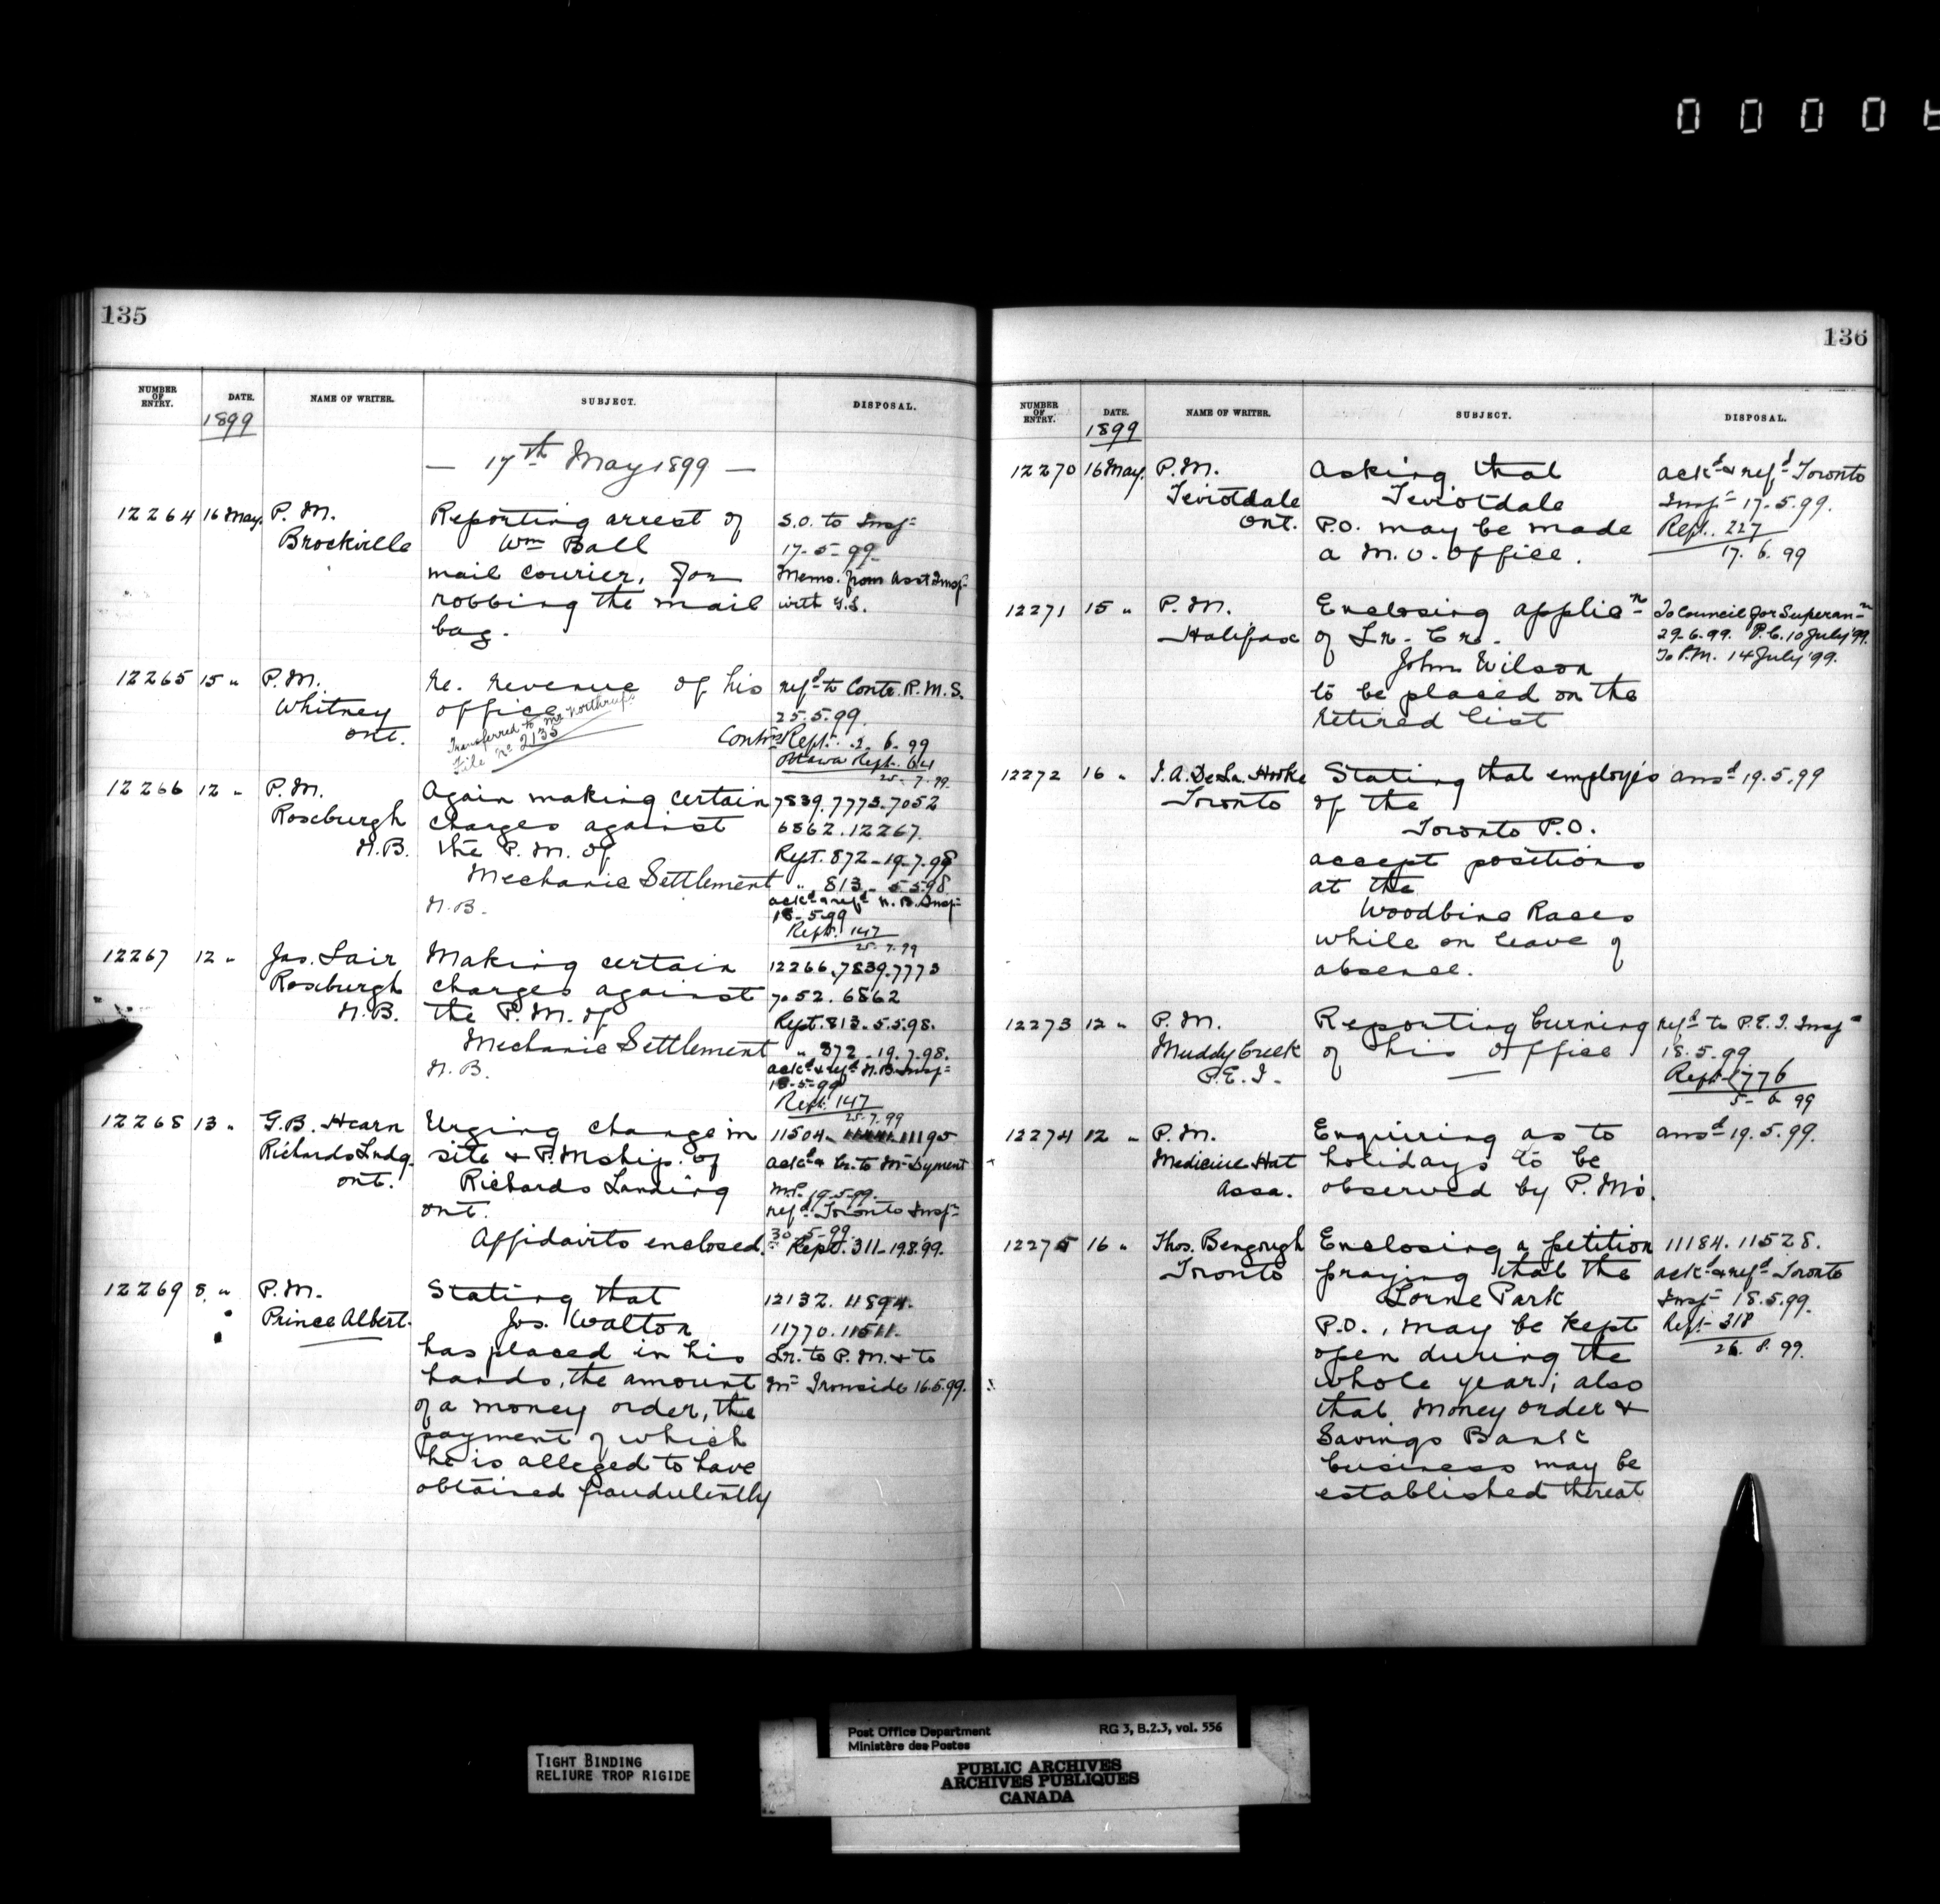 0 0 0 0
135
NUMBER OF ENTRY. DATE. NAME OF WRITER. SUBJECT. DISPOSAL.
1899
— 17th May 1899 —
12264 16 May. P.M. Reporting arrest of S.O. to Insp-
Brockville Wm Ball 17-5-99.
mail courier, for Memo. from Asst Insp-
robbing the mail with G.S.
bag.
12265 15 " P.M. Re. revenue of his refd to Contr. R.M.S.
Whitney office. 25.5.99.
Ont. Transferred to Mr Northrup. Contrs Rept. 2. 6. 99
File No 2135 Ottawa Rept. 64
25-7-99.
12266 12 " P.M. Again making certain 7839.7773.7052
Roseburgh charges against 6862.12267.
N.B. the P.M. of Rept. 872-19-7.98
Mechanic Settlement " 813- 5.5.98.
N.B. ackd & refd N.B. Insp-
18-5-99
Rept. 147
25.7.99
12267 12 " Jas. Lair Making certain 12266.7839.7773
Roseburgh charges against 7052.6862
N.B. the P.M. of Rept. 813-5.5.98.
Mechanic Settlement " 872-19.7.98.
N.B. ackd & refd N.B. Insp-
18-5-99
Rept. 147
25.7.99
12268 13 " G.B. Hearn Urging change in 11504. 11195
Richards Lndg. site & P.Mship. of ackd & Lr. to Mr Dyment
Ont. Richards Landing M.P. 19.5.99.
Ont. refd Toronto Insp-
Affidavits enclosed. 30-5-99.
Rept. 311-19.8.99.
12269 8. " P.M. Stating that 12132. 11894.
Prince Albert. Jos. Walton 11770. 11511.
has placed in his Lr. to P.M. & to
hands, the amount Mr Ironside 16.5.99.
of a money order, the
payment of which
he is alleged to have
obtained fraudulently
136
NUMBER OF ENTRY. DATE. NAME OF WRITER. SUBJECT. DISPOSAL.
1899
12270 16 May. P.M. Asking that ackd & refd Toronto
Teviotdale Teviotdale Insp- 17-5.99.
Ont. P.O. may be made Rept. 227
a M.O. Office. 17. 6. 99
12271 15 " P.M. Enclosing applicn To Council for Superann
Halifax of Lr. Cr. 29-6.99. P.C. 10 July '99.
John Wilson To P.M. 14 July '99.
to be placed on the
retired list
12272 16 " T.A. De La Hooke Stating that employés ansd 19.5.99
Toronto of the
Toronto P.O.
accept positions
at the
Woodbine Races
while on leave of
absence.
12273 12 " P.M. Reporting burning refd to P.E.I. Insp-
Muddy Creek of his Office 18.5.99
P.E.I. Rept. 776
5- 6 99
12274 12 " P.M. Enquiring as to ansd 19.5.99.
Medicine Hat holidays to be
Assa. observed by P.Ms.
12275 16 " Thos. Bengough Enclosing a petition 11184. 11528.
Toronto praying that the ackd & refd Toronto
Lorne Park Insp- 18.5.99.
P.O., may be kept Rept- 318
open during the 26. 8. 99.
whole year; also
that Money Order &
Savings Bank
business may be
established thereat
TIGHT BINDING
RELIURE TROP RIGIDE
Post Office Department RG 3, B.2.3, vol. 556
Ministère des Postes
PUBLIC ARCHIVES
ARCHIVES PUBLIQUES
CANADA